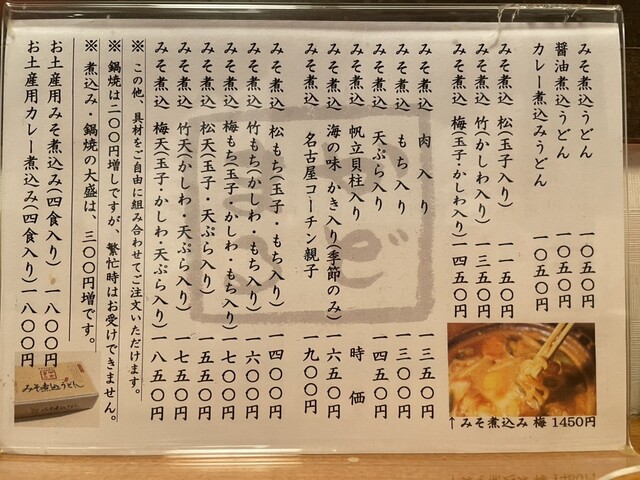 みそ煮込うどん 一〇五〇円
醤油煮込うどん 一〇五〇円
カレー煮込みうどん 一〇五〇円
みそ煮込 松(玉子入り) 一一五〇円
みそ煮込 竹(かしわ入り) 一三五〇円
みそ煮込 梅(玉子・かしわ入り) 一四五〇円
みそ煮込 肉入り 一三五〇円
みそ煮込 もち入り 一三〇〇円
みそ煮込 天ぷら入り 一四五〇円
みそ煮込 帆立貝柱入り 時価
みそ煮込 海の味 かき入り(季節のみ) 一六五〇円
みそ煮込 名古屋コーチン親子 一九〇〇円
みそ煮込 松もち(玉子・もち入り) 一四〇〇円
みそ煮込 竹もち(かしわ・もち入り) 一六〇〇円
みそ煮込 梅もち(玉子・かしわ・もち入り) 一七〇〇円
みそ煮込 松天(玉子・天ぷら入り) 一五五〇円
みそ煮込 竹天(かしわ・天ぷら入り) 一七五〇円
みそ煮込 梅天(玉子・かしわ・天ぷら入り) 一八五〇円
※この他、具材をご自由に組み合わせてご注文いただけます。
※鍋焼は二〇〇円増しですが、繁忙時はお受けできません。
※煮込み・鍋焼の大盛は、三〇〇円増です。
お土産用みそ煮込み(四食入り) 一八〇〇円
お土産用カレー煮込み(四食入り) 一八〇〇円
↑みそ煮込み 梅 1450円
みそ煮込うどん